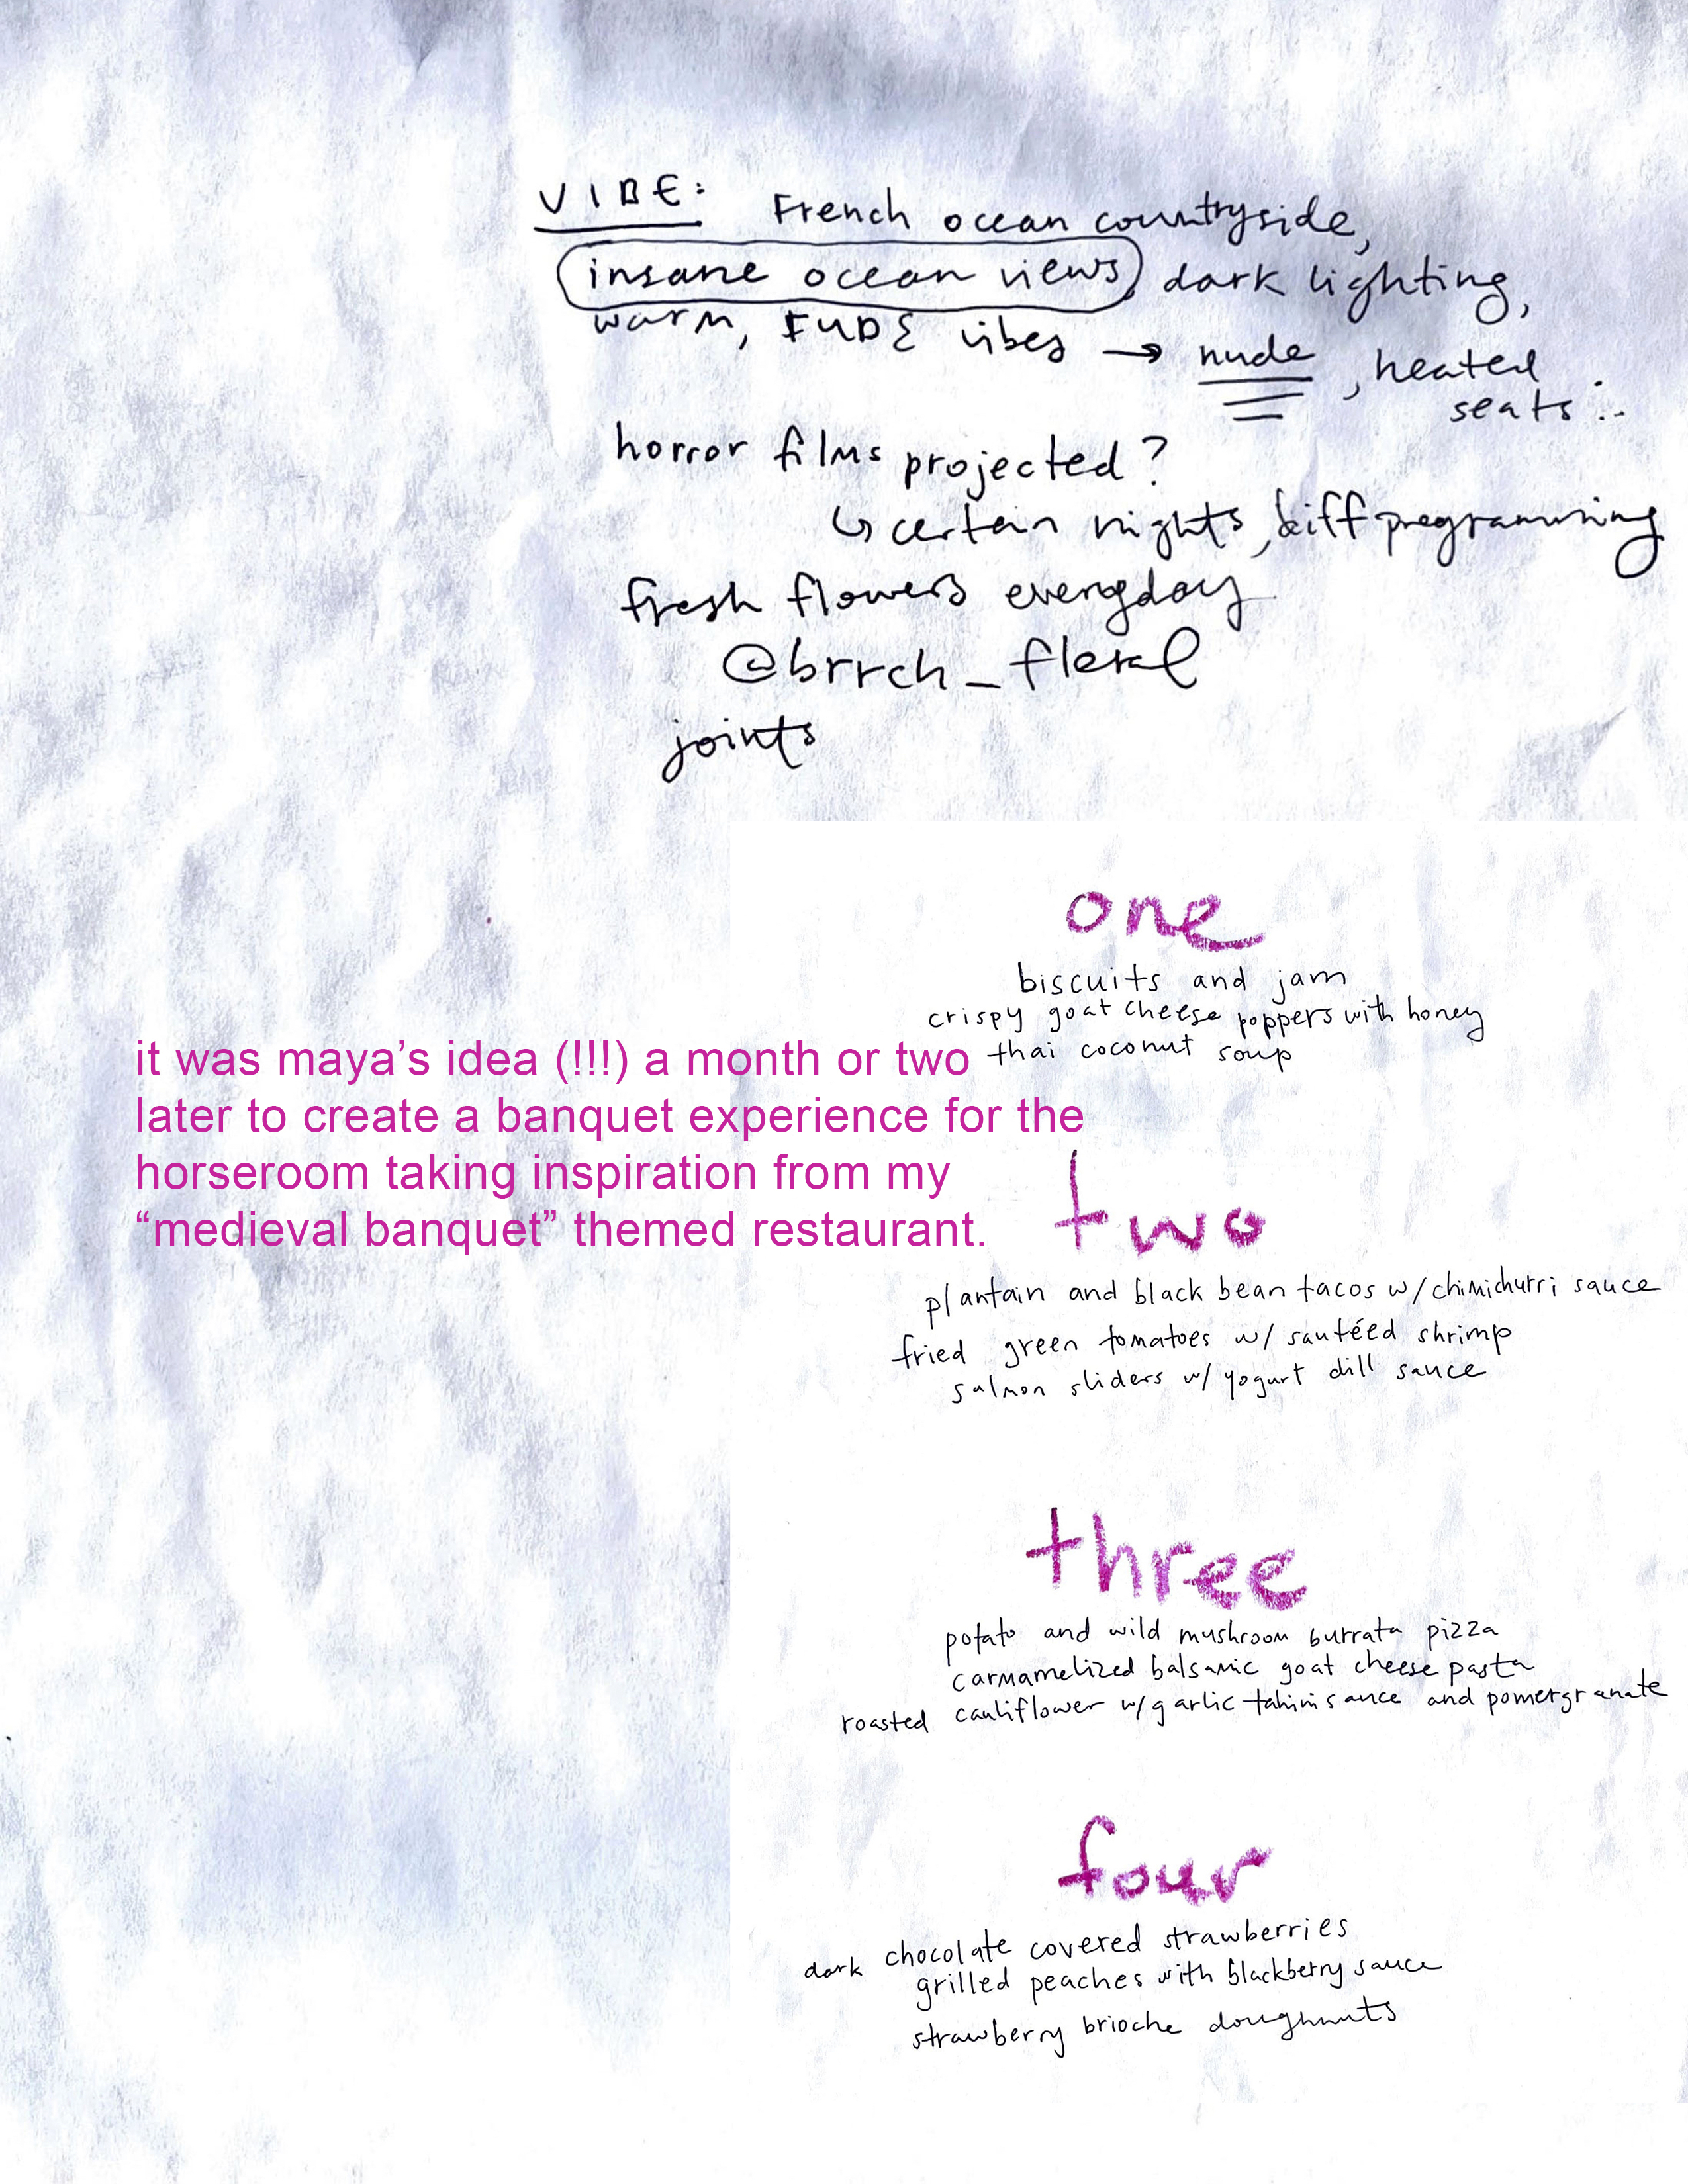 VIBE: French ocean countryside,
insane ocean views, dark lighting,
warm, FUDE vibes → nude, heated
seats :.
horror films projected?
↳ certain nights, diff programming
fresh flowers everyday
@brrch_floral
joints
one
biscuits and jam
crispy goat cheese poppers with honey
thai coconut soup
it was maya’s idea (!!!) a month or two
later to create a banquet experience for the
horseroom taking inspiration from my
“medieval banquet” themed restaurant.
two
plantain and black bean tacos w/ chimichurri sauce
fried green tomatoes w/ sautéed shrimp
salmon sliders w/ yogurt dill sauce
three
potato and wild mushroom burrata pizza
carmamelized balsamic goat cheese pasta
roasted cauliflower w/ garlic tahini sauce and pomergranate
four
dark chocolate covered strawberries
grilled peaches with blackberry sauce
strawberry brioche doughnuts